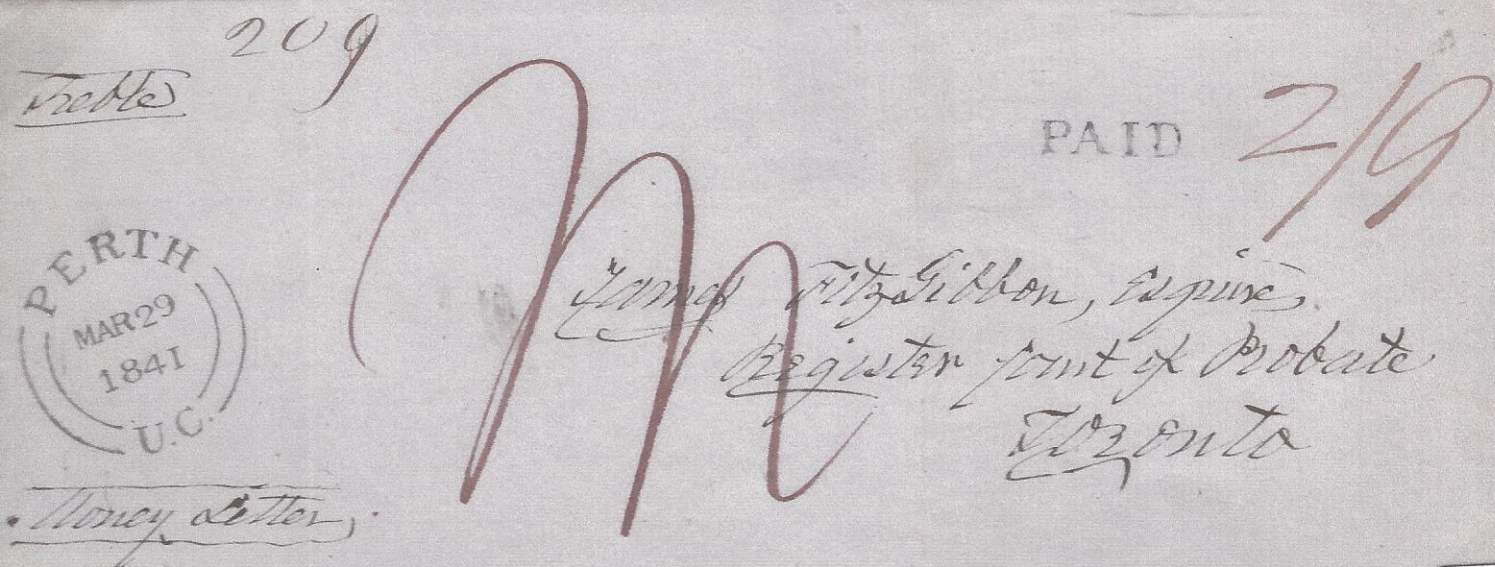 209
Treble
PAID 2/9
PERTH
MAR 29
1841
U.C.
M
James FitzGibbon, Esquire,
Register Court of Probate
Toronto
Money Letter,